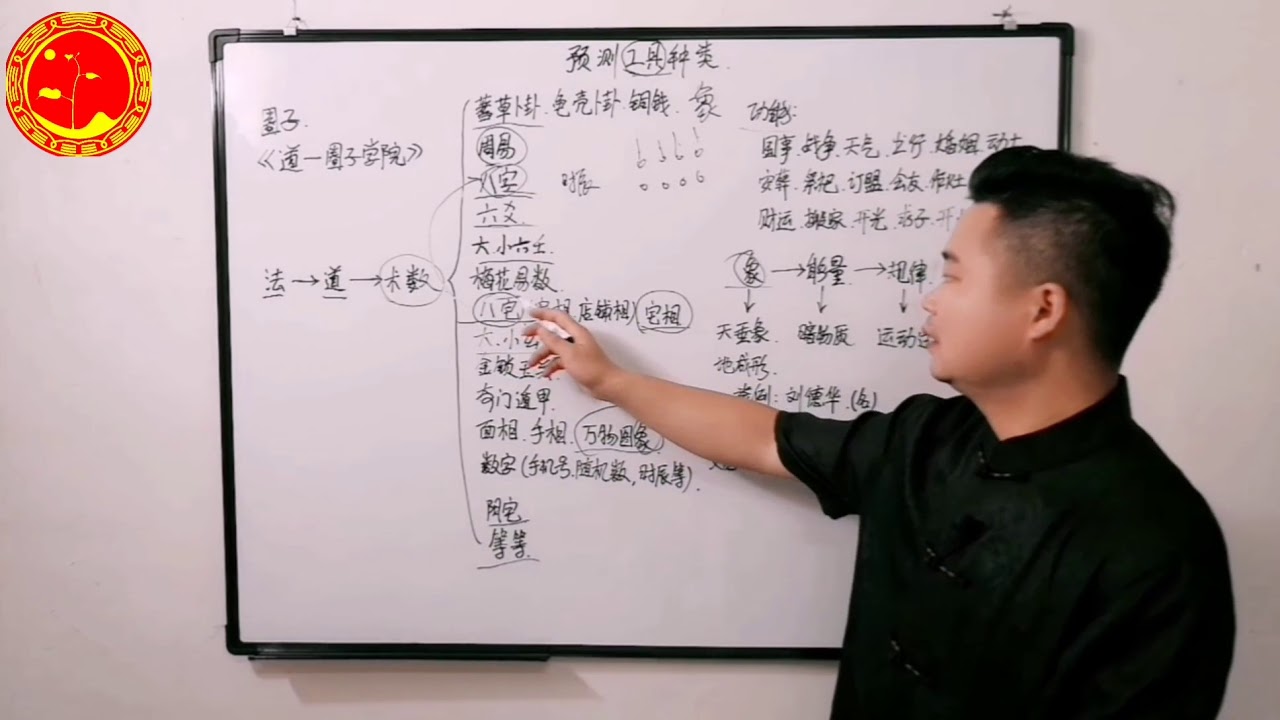 预测工具种类.
圈子.
《道一圈子学院》
法→道→术数
蓍草卦.龟壳卦.铜钱.象
周易
八字 时辰
六爻
大.小六壬.
梅花易数.
八宅 店铺相) 宅相
六.小
金锁玉
奇门遁甲.
面相.手相.万物图象
数字(手机号.随机数,时辰等).
阴宅
等等.
功能:
国事.战争.天气.出行.婚姻.动土
安葬.祭祀.订盟.会友.作灶
财运.搬家.开光.求子.开
象→能量→规律
天垂象. 暗物质 运动
地成形.
案例:刘德华.(名)